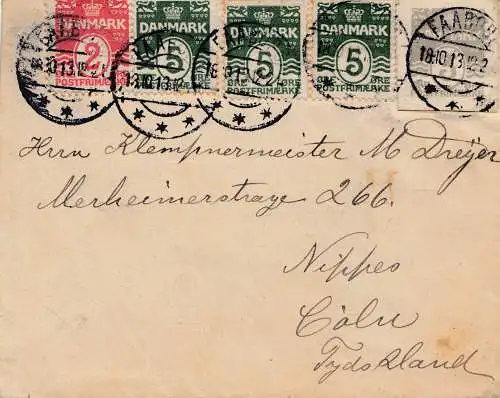 DANMARK DANMARK DANMARK DANMARK
2 5 5 5
ØRE ØRE ØRE ØRE
POSTFRIMÆRKE POSTFRIMÆRKE POSTFRIMÆRKE
FAABORG
18.10.13.12-2
Herrn Klempnermeister M Dreÿer
Merheimerstraze 266.
Nippes
Cöln
Tydskland